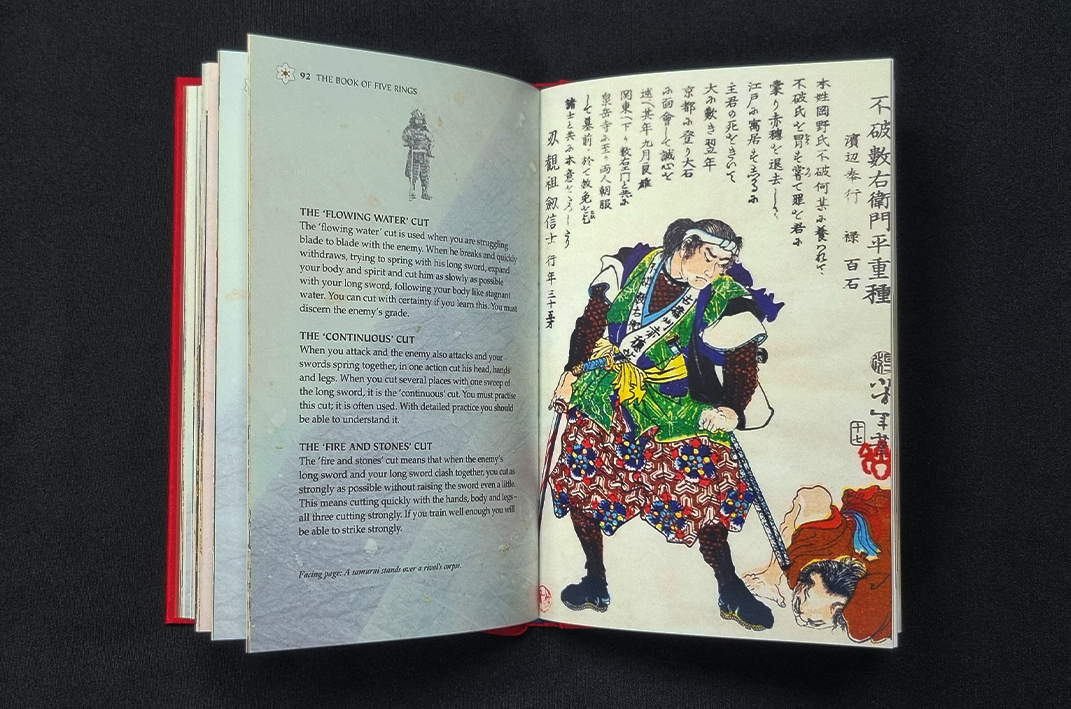 92 THE BOOK OF FIVE RINGS
THE 'FLOWING WATER' CUT
The 'flowing water' cut is used when you are struggling
blade to blade with the enemy. When he breaks and quickly
withdraws, trying to spring with his long sword, expand
your body and spirit and cut him as slowly as possible
with your long sword, following your body like stagnant
water. You can cut with certainty if you learn this. You must
discern the enemy's grade.
THE 'CONTINUOUS' CUT
When you attack and the enemy also attacks and your
swords spring together, in one action cut his head, hands
and legs. When you cut several places with one sweep of
the long sword, it is the 'continuous' cut. You must practise
this cut; it is often used. With detailed practice you should
be able to understand it.
THE 'FIRE AND STONES' CUT
The 'fire and stones' cut means that when the enemy's
long sword and your long sword clash together, you cut as
strongly as possible without raising the sword even a little.
This means cutting quickly with the hands, body and legs–
all three cutting strongly. If you train well enough you will
be able to strike strongly.
Facing page: A samurai stands over a rival's corpse.
不破數右衛門平重種
濱辺奉行 禄 百石
本姓岡野氏不破何某
不破氏を冒
赤穂を退去
江戸
主君の死を
大 歎き翌年
京都 登り大石
面會して誠心を
其年九月良雄
関東へ下り
泉岳寺 両人朝服
墓前
諸士と共 本意
刃観祖剱信士 行年三十五才
十七